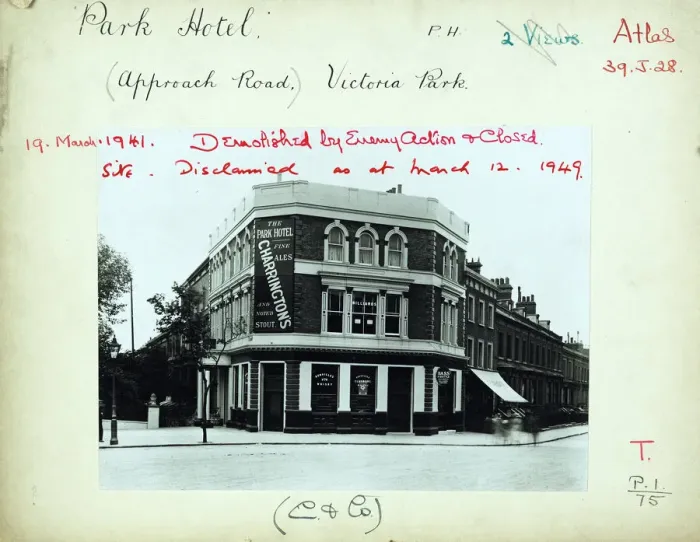 Park Hotel.
P.H.
2 Views.
Atlas
39.J.28.
(Approach Road,) Victoria Park.
19. March. 1941. Demolished by Enemy Action & Closed.
Site. Disclaimed as at March 12. 1949.
THE
PARK HOTEL
FINE
ALES
CHARRINGTON'S
AND
NOTED
STOUT.
BILLIARDS
BASS
T.
P.1.
75
(C. & Co.)